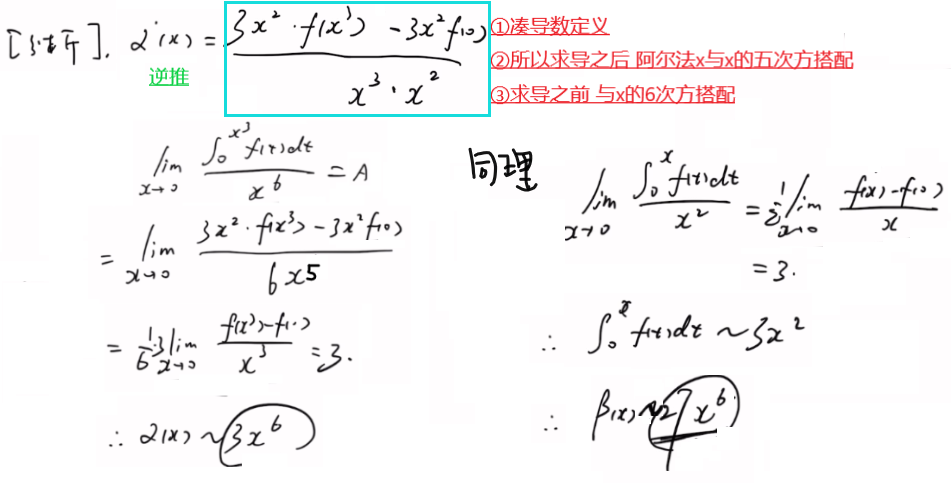 [分析]. α'(x) = \frac{3x^2 \cdot f(x^3) - 3x^2 f(0)}{x^3 \cdot x^2}
①凑导数定义
逆推
②所以求导之后 阿尔法x与x的五次方搭配
③求导之前 与x的6次方搭配
\lim_{x→0} \frac{\int_0^{x^3} f(t)dt}{x^6} = A
= \lim_{x→0} \frac{3x^2 \cdot f(x^3) - 3x^2 f(0)}{6x^5}
= \frac{1}{6} \cdot 3 \lim_{x→0} \frac{f(x^3) - f(0)}{x^3} = 3.
∴ α(x) ~ 3x^6
同理
\lim_{x→0} \frac{\int_0^x f(t)dt}{x^2} = \frac{1}{2} \lim_{x→0} \frac{f(x) - f(0)}{x}
= 3.
∴ \int_0^x f(t)dt ~ 3x^2
∴ β(x) ~ 27x^6